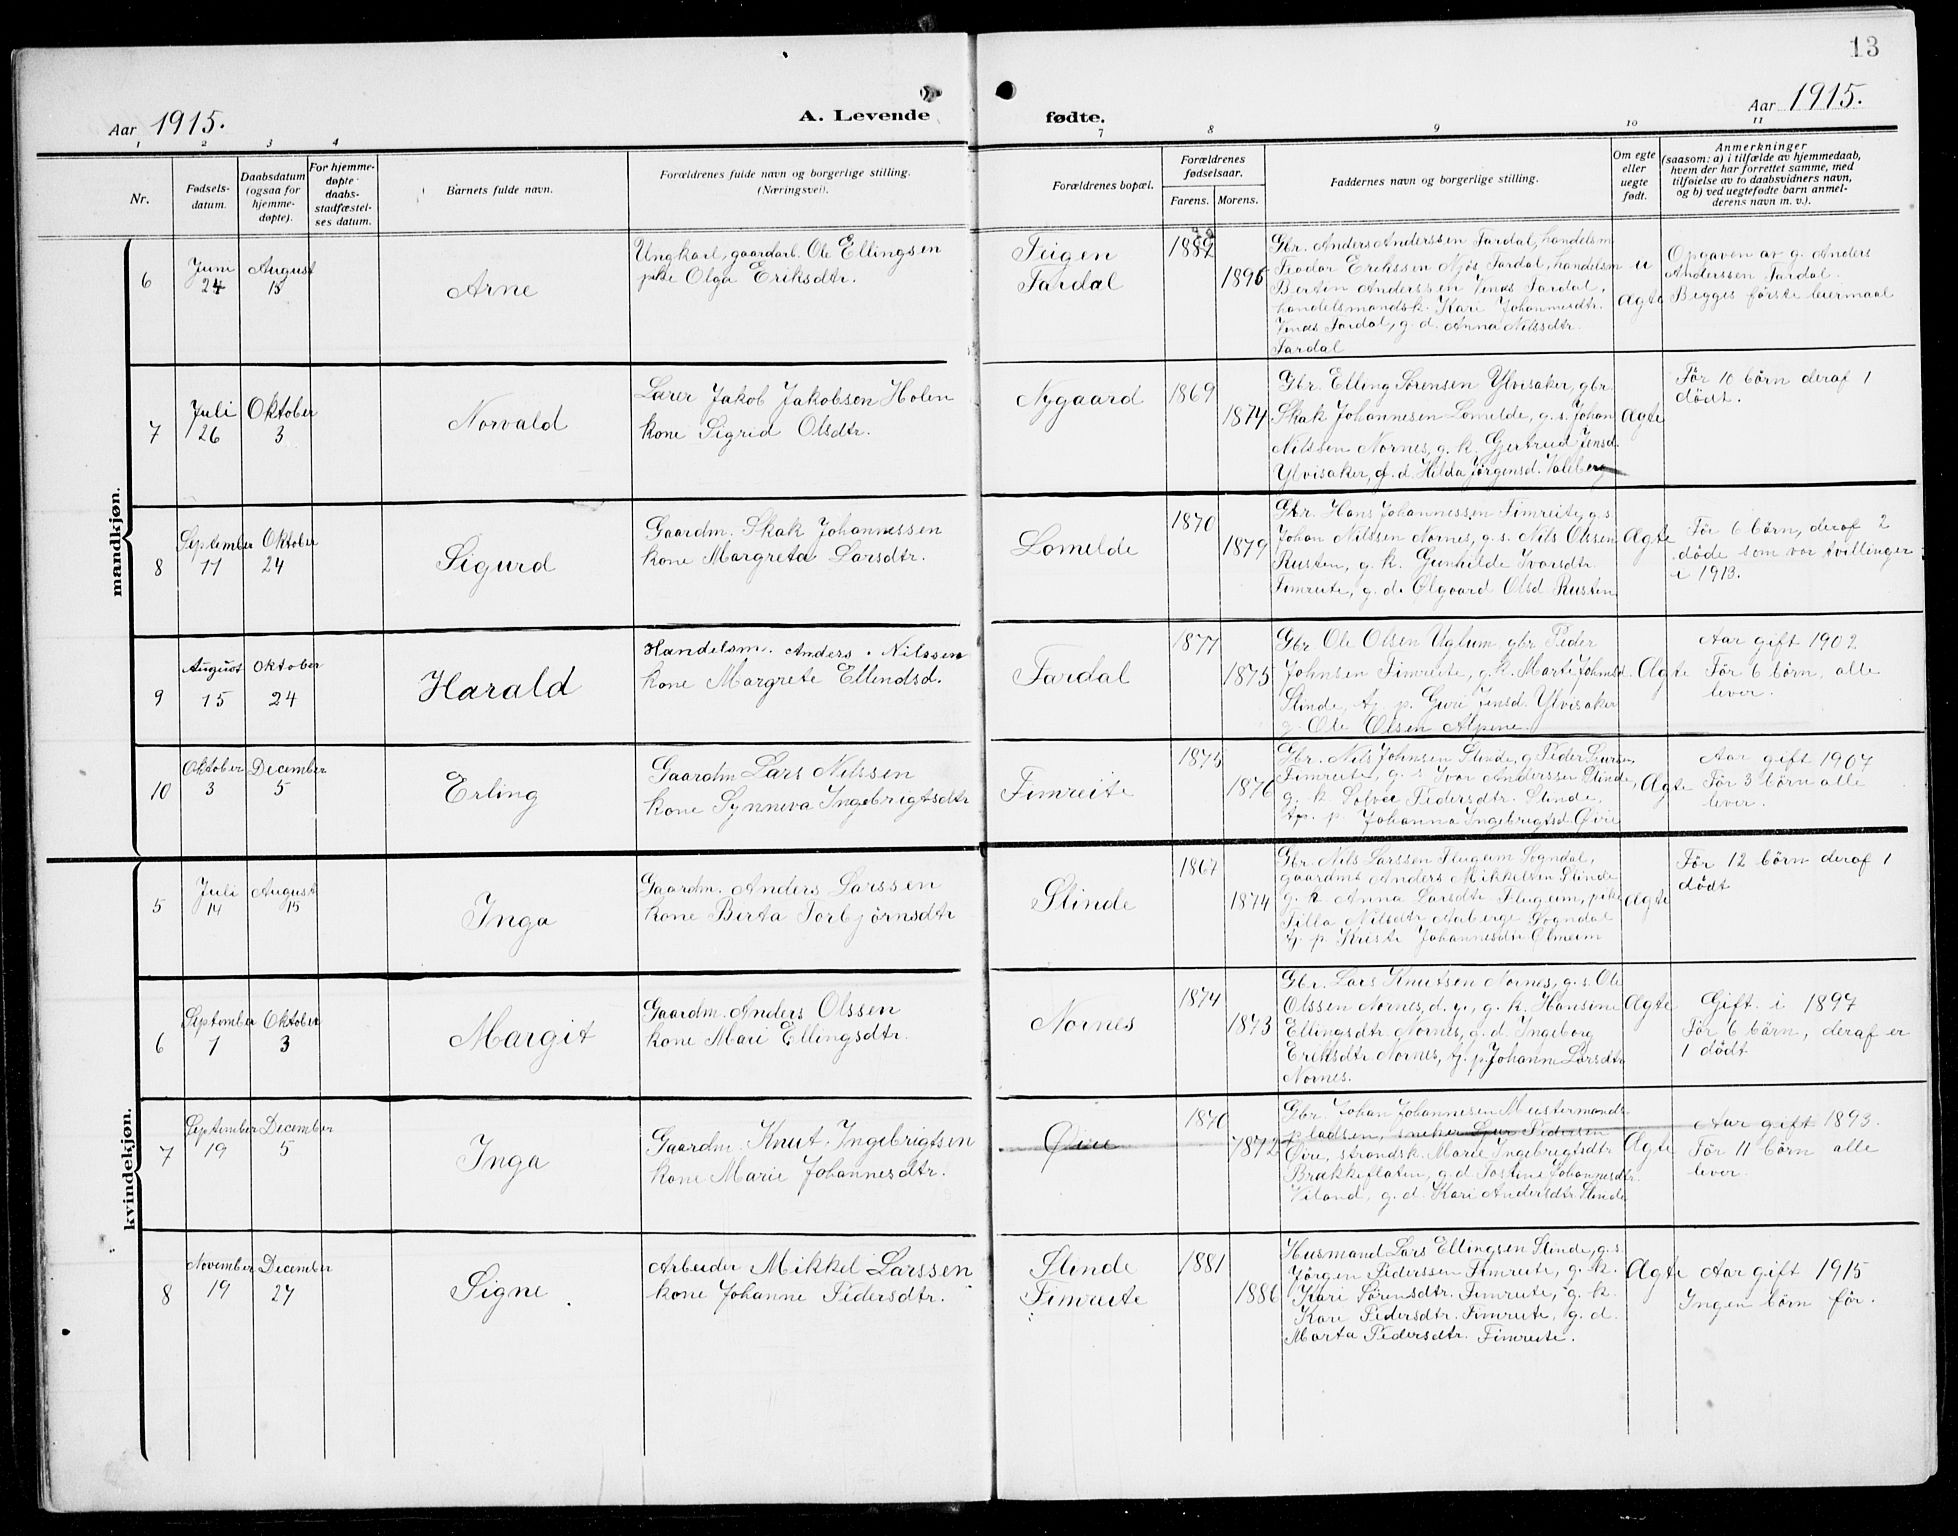 13
Aar 1915.
A. Levende
fødte.
Aar 1915.
1 2 3 4 7 8 9 10 11
Nr.
Fødsels-
datum.
Daabsdatum
(ogsaa for
hjemme-
døpte).
For hjemme-
døpte
daabs-
stadfæstel-
ses datum.
Barnets fulde navn.
Forældrenes fulde navn og borgerlige stilling.
(Næringsvei).
Forældrenes bopæl.
Forældrenes
fødselsaar.
Farens. Morens.
Faddernes navn og borgerlige stilling.
Om egte
eller
uegte
født.
Anmerkninger
(saasom: a) i tilfælde av hjemmedaab,
hvem der har forrettet samme, med
tilføielse av to daabsvidners navn,
og b) ved uegtefødte barn anmel-
derens navn m. v.).
mandkjøn.
6
Juni
24
August
15
Arne
Ungkarl, gaardarb. Ole Ellingsen
pike Olga Eriksdtr.
Feigen
Fardal
1896
Gbr. Anders Anderssen Fardal, handelsm
Teodor Erikssen Njøs Fardal, handelsm
Berton Anderssen Jenas Fardal,
handelsmandsk. Kari Johannesdtr.
Jenas Fardal, g. d. Anna Nilsdtr.
Fardal
u
Agte
Opgaven av g. Anders
Anderssen Fardal.
Begges første leiermaal
7
Juli
26
Oktober
3
Norvald
Lærer Jakob Jakobsen Holen
kone Sigrid Olsdtr.
Nygaard
1869
1874
Gbr. Elling Sørensen Ylvisaker, gbr
Skak Johannesen Lomelde, g. s. Johan
Nilssen Nornes, g. k. Gjertrud Jensd.
Ylvisaker, g. d. Hilda Jørgensd. Kaleberg
Agte
Før 10 børn deraf 1
dødt.
8
September
11
Oktober
24
Sigurd
Gaardm. Skak Johannessen
kone Margreta Larsdtr.
Lomelde
1870
1879
Gbr. Hans Johannessen Fimreite, g. s
Johan Nilssen Nornes, g. s. Nils Olssen
Rusten, g. k. Gunhilde Ivarsdtr.
Fimreite, g. d. Olgaard Olsd Rusten
Agte
Før 6 børn, deraf 2
døde som var tvillinger
i 1913.
9
August
15
Oktober
24
Harald
Handelsm. Anders Nilssen
kone Margrete Ellendsd.
Fardal
1877
1875
Gbr. Ole Olsen Uglum, gbr Peder
Johnsen Fimreite, g. k. Marte Johnsd
Slinde, tj. p. Guri Jensd. Ylvisaker
g. Ole Olsen Alpene.
Agte
Aar gift 1902
Før 6 børn, alle
lever.
10
Oktober
3
December
5
Erling
Gaardm Lars Nilssen
kone Synneva Ingebrigtsdtr
Fimreite
1875
1876
Gbr. Nils Johnsen Slinde, g Peder
Fimreite, g. s Ivar Anderssen Slinde,
g. k. Solvei Pedersdtr. Slinde,
tj. p. Johanna Ingebrigtsd. Øvre
Agte
Aar gift 1907
Før 3 børn alle
lever.
kvindekjøn.
5
Juli
14
August
15
Inga
Gaardm. Anders Larssen
kone Birta Torbjørnsdtr
Slinde
1867
1874
Gbr. Nils Larssen Flugeim Sogndal,
gaardms Anders Mikkelsen Slinde
g. k Anna Larsdtr Flugeim, pike
Silla Nilsdtr Aaberge Sogndal
tj. p. Kristi Johannesdtr Olmeim
Agte
Før 12 børn deraf 1
dødt
6
September
1
Oktober
3
Margit
Gaardm. Anders Olssen
kone Mari Ellingsdtr.
Nornes
1874
1873
Gbr. Lars Knutsen Nornes, g. s. Ole
Olssen Nornes, d. y., g. k. Hansine
Ellingsdtr Nornes, g. d. Ingeborg
Eriksdtr Nornes, tj. p. Johanne Larsdtr
Nornes.
Agte
Gift. i 1897
Før 6 børn, deraf er
1 dødt
7
September
19
December
5
Inga
Gaardm. Knut Ingebrigtsen
kone Marie Johannesdtr.
Øvre
1870
1872
Gbr. Johan Johannesen Mustermands-
pladsen, sneker Pedersen
Øvre, strandsk. Marie Ingebrigtsdtr
Brækkeflaten, g. d Jostine Johannesdtr.
g. d. Kari Andersdtr. Slinde
Agte
Aar gift 1893.
Før 11 børn alle
lever.
8
November
19
December
27
Signe
Arbeider Mikkel Larssen
kone Johanne Pedersdtr.
Slinde
Fimreite
1881
1886
Husmand Lars Ellingsen Slinde, g. s.
Jørgen Pederssen Fimreite, g. k.
Kari Sørensdtr. Fimreite, g. k.
Kari Pedersdtr. Fimreite, g. d.
Marta Pedersdtr. Fimreite.
Agte
Aar gift 1915
Ingen børn før.